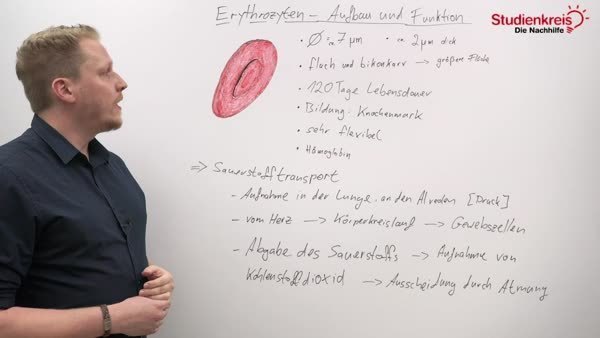 Erythrozyten – Aufbau und Funktion
Studienkreis
Die Nachhilfe
• Ø = ca. 7 µm • ca. 2 µm dick
• flach und bikonkav → größere Fläche
• 120 Tage Lebensdauer
• Bildung: Knochenmark
• sehr flexibel
• Hämoglobin
⇒ Sauerstofftransport
– Aufnahme in der Lunge, an den Alveolen [Druck]
– vom Herz → Körperkreislauf → Gewebszellen
– Abgabe des Sauerstoffs → Aufnahme von
Kohlenstoffdioxid → Ausscheidung durch Atmung